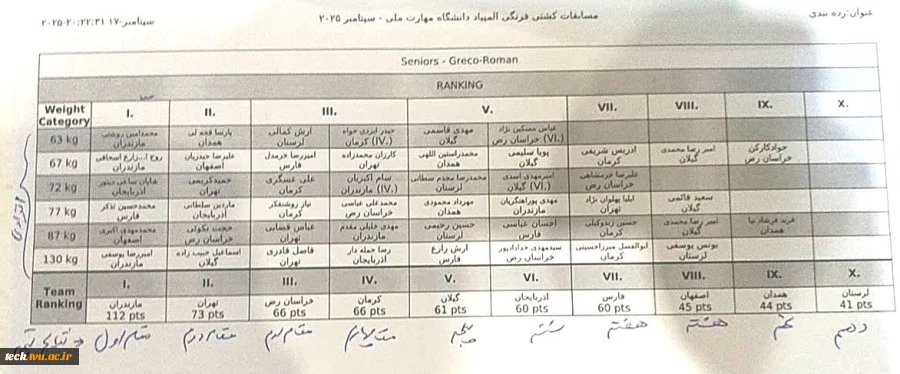 عنوان: رده بندی
مسابقات کشتی فرنگی المپیاد دانشگاه مهارت ملی - سپتامبر ۲۰۲۵
Seniors - Greco-Roman
RANKING
Weight Category I. II. III. V. VII. VIII. IX. X.
63 kg محمدامین روشنی مازندران پارسا همدان آرش کمالی لرستان حیدر ایزدی خواه کرمان (IV.) مهدی قاسمی گیلان عباس مسکین نژاد خراسان رض (VI.)
67 kg مازندران علیرضا حیدریان اصفهان امیررضا فارس کارزان محمدزاده تهران محمدراستین اللهی همدان پویا سلیمی گیلان ادریس شریفی کرمان امیر رضا محمدی گیلان جوادکارکن خراسان رض
72 kg شایان آذربایجان حمیدکریمی تهران علی عسگری کرمان سام اکبریان مازندران (IV.) محمدرضا لرستان امیرمهدی اسدی گیلان (VI.) علیرضا خرمشاهی خراسان رض
77 kg محمدحسین فارس ماردین سلطانی آذربایجان نیاز روشنفکر کرمان محمدعلی عباسی خراسان رض مهرداد محمودی همدان مهدی مازندران ایلیا پهلوان نژاد تهران سعید قائمی گیلان
87 kg محمدمهدی اکبری اصفهان حجت خراسان رض عباس تهران مهدی خلیلی مقدم مازندران حسین رحیمی لرستان احسان عباسی فارس حسین کرمان امیر رضا محمدی گیلان فربد فرشاد نیا همدان
130 kg امیررضا یوسفی مازندران اسماعیل حبیب زاده گیلان فاضل قادری تهران رضا حمله دار آذربایجان آرش زارع فارس سیدمهدی خدادادپور خراسان رض ابوالفضل میرزاحسینی کرمان یونس یوسفی لرستان
Team Ranking I. II. III. IV. V. VI. VII. VIII. IX. X.
مازندران تهران خراسان رض کرمان گیلان آذربایجان فارس اصفهان همدان لرستان
112 pts 73 pts 66 pts 66 pts 61 pts 60 pts 60 pts 45 pts 44 pts 41 pts
مقام اول مقام دوم مقام سوم مقام چهارم پنجم ششم هفتم هشتم نهم دهم
tech.tvu.ac.ir